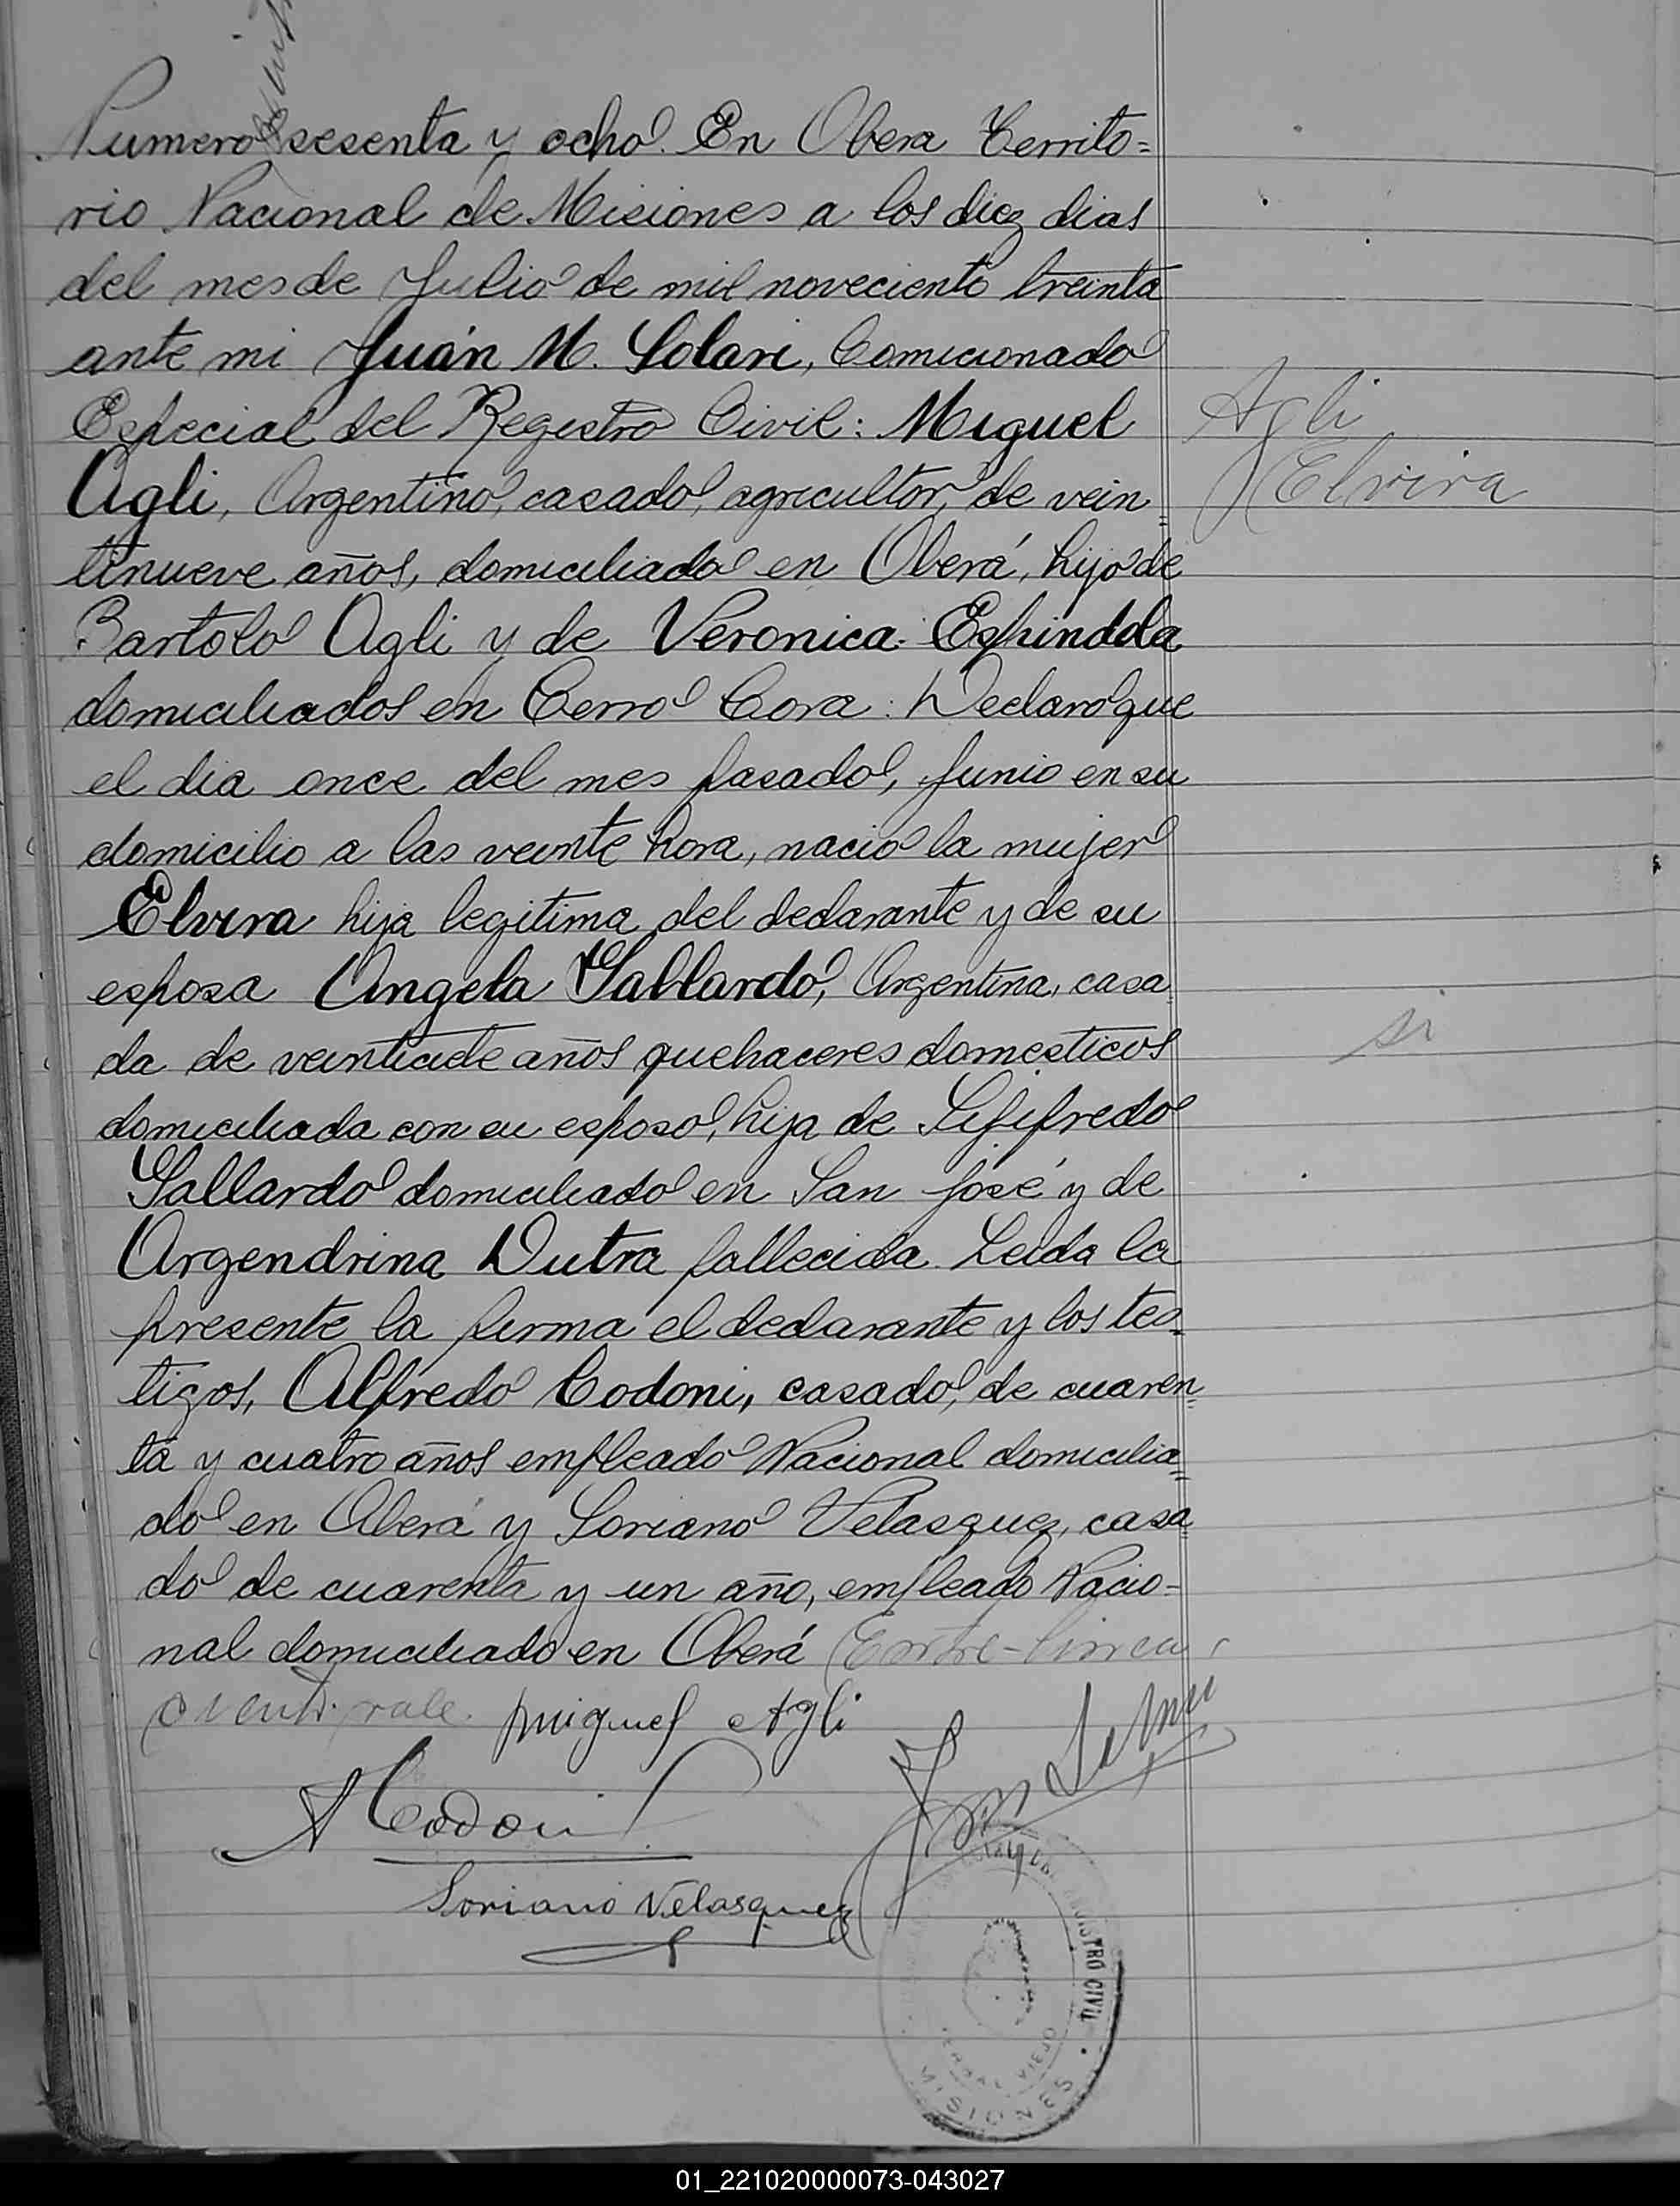 Numero sesenta y ocho. En Obera Territo=
rio Nacional de Misiones a los diez dias
del mes de Julio de mil noveciento treinta
ante mi Juán M. Solari, Comicionado
Especial del Registro Civil: Miguel
Agli, Argentino, casado, agricultor, de vein=
tinueve años, domiciliado en Oberá, hijo de
Bartolo Agli y de Veronica Espindola
domiciliados en Cerro Cora: Declaro que
el dia once del mes pasado, Junio en su
domicilio a las veinte hora, nacio la mujer
Elvira hija legitima del declarante y de su
esposa Angela Gallardo, Argentina, casa
da de veinticiete años quehaceres domesticos
domiciliada con su esposo, hija de Sififredo
Gallardo domiciliado en San José y de
Argendrina Dutra fallecida. Leida la
presente la firma el declarante y los tes=
tigos, Alfredo Codoni, casado, de cuaren=
ta y cuatro años empleado Nacional domicilia=
do en Oberá y Soriano Velasquez, casa
do de cuarenta y un año, empleado Nacio=
nal domiciliado en Oberá Entre-linea
vale. Miguel Agli
A Codoni
Soriano Velasquez
Agli
Elvira
si
REGISTRO CIVIL
YERBAL VIEJO
MISIONES
01_221020000073-043027